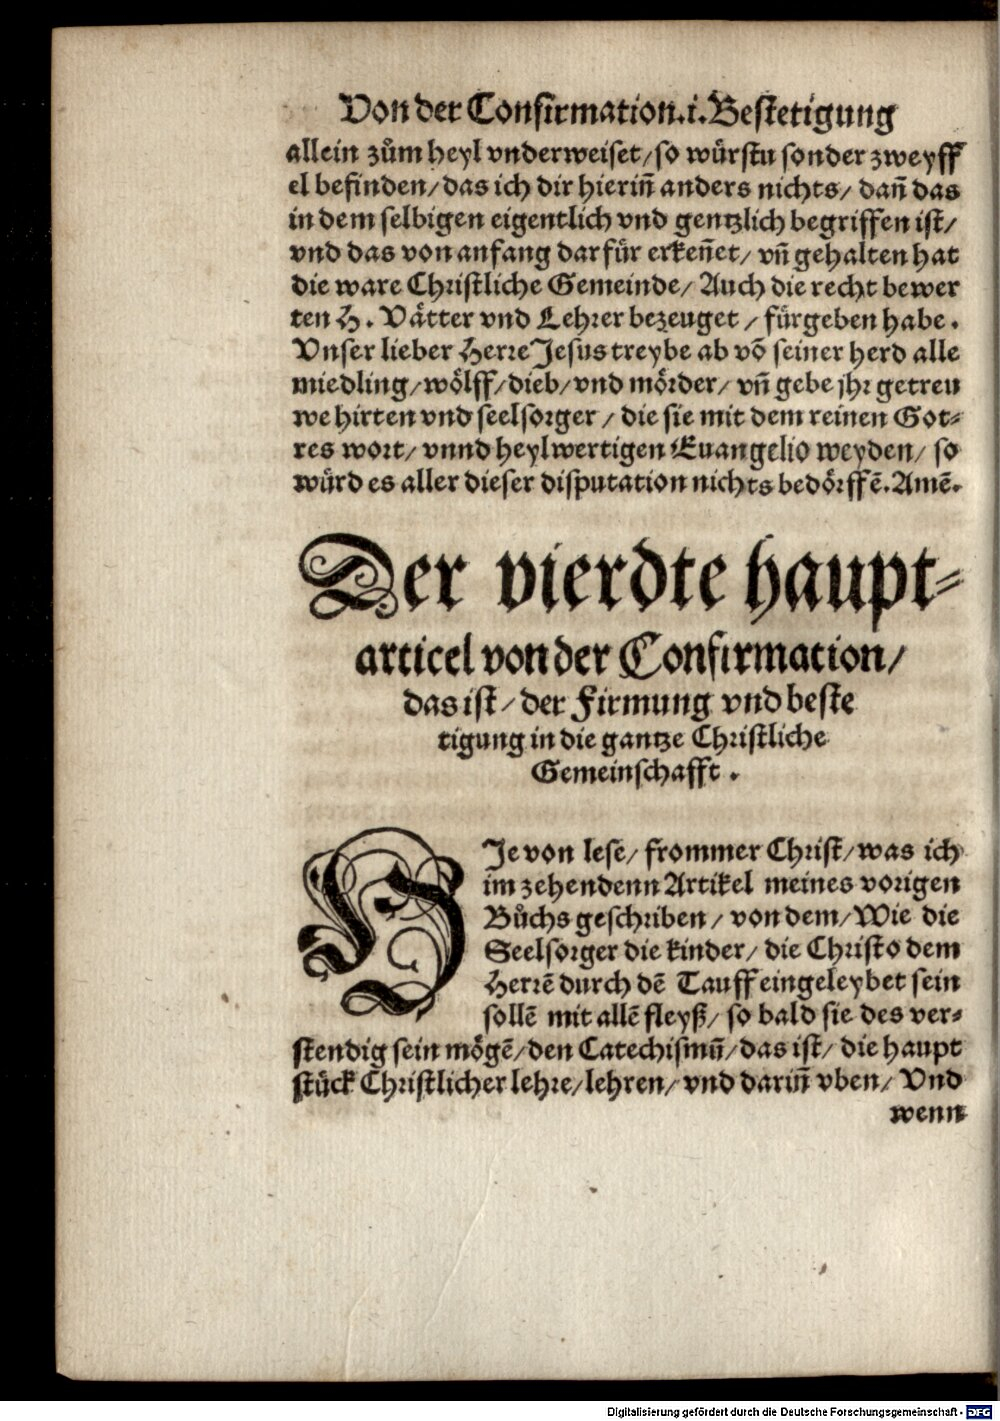 Von der Confirmation.i.Bestetigung
allein zům heyl vnderweiset/so würstu sonder zweyff
el befinden/das ich dir hieriñ anders nichts/dañ das
in dem selbigen eigentlich vnd gentzlich begriffen ist/
vnd das von anfang darfür erkeñet/vñ gehalten hat
die ware Christliche Gemeinde/Auch die recht bewer
ten H. Vätter vnd Lehrer bezeuget/fürgeben habe.
Vnser lieber Herre Jesus treybe ab võ seiner herd alle
miedling/wölff/dieb/vnd mörder/vñ gebe jhr getreu
we hirten vnd seelsorger/die sie mit dem reinen Got⸗
tes wort/vnnd heylwertigen Euangelio weyden/so
würd es aller dieser disputation nichts bedörffẽ.Amẽ.
Der vierdte haupt⸗
articel von der Confirmation/
das ist/der Firmung vnd beste
tigung in die gantze Christliche
Gemeinschafft.
HJe von lese/frommer Christ/was ich
im zehendenn Artikel meines vorigen
Bůchs geschriben/von dem/Wie die
Seelsorger die kinder/die Christo dem
Herrẽ durch dẽ Tauff eingeleybet sein
sollẽ mit allẽ fleyß/so bald sie des ver⸗
stendig sein mögẽ/den Catechismũ/das ist/die haupt
stück Christlicher lehre/lehren/vnd dariñ vben/Vnd
wenn
Digitalisierung gefördert durch die Deutsche Forschungsgemeinschaft - DFG